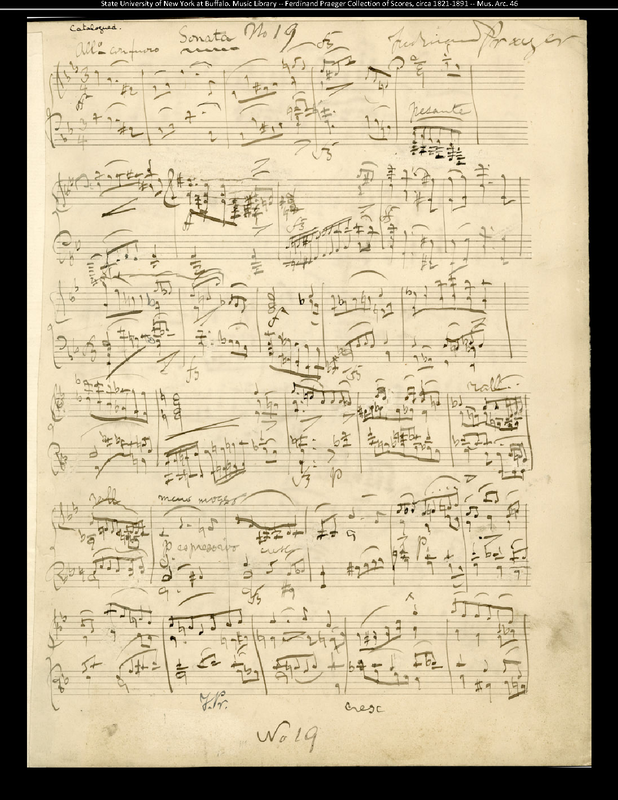 State University of New York at Buffalo. Music Library -- Ferdinand Praeger Collection of Scores, circa 1821-1891 -- Mus. Arc. 46
Catalogued.
Sonata No 19 Ferdinand Praeger
fz
pesante
fz
fz
fz
fz
fz
rall.
fz p
rall meno mosso
p espressivo
p
fz
cresc
No 19